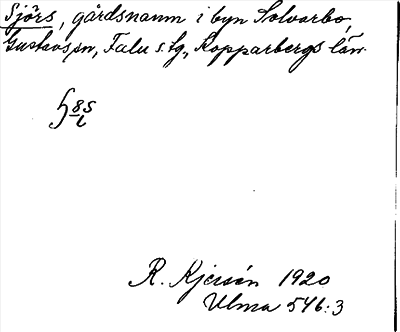 Sjörs, gårdsnamn i byn Solvarbo,
Gustavs sn, Falu s. lg., Kopparbergs län.
R. Kjersén 1920
Ulma 546:3